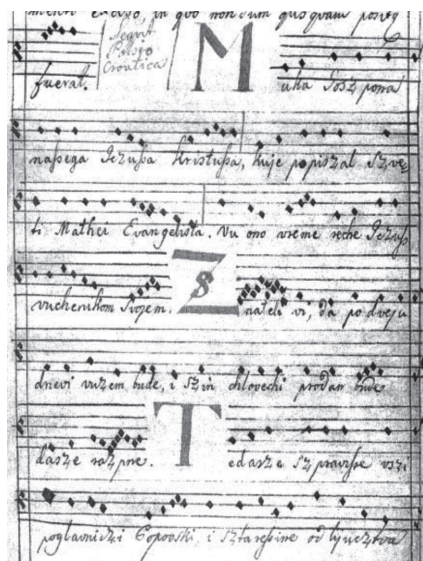 in quo non dum quisquam posit9
fuerat. Sequit Passio Croatica Muka Goszpona
nassega Jezussa Kristussa, kuje popiszal szve-
ti Mathei Evangelista. Vu ono vreme reche Jezuss
vuchenikom szvojem. Sznateli vi, da po dveju
dnevi vuzem bude, i szin chlovechi prodan bude
dasze razpne. Tedasze szpravisse vszi
poglavniczi Popovski, i sztaressine od lyucztva